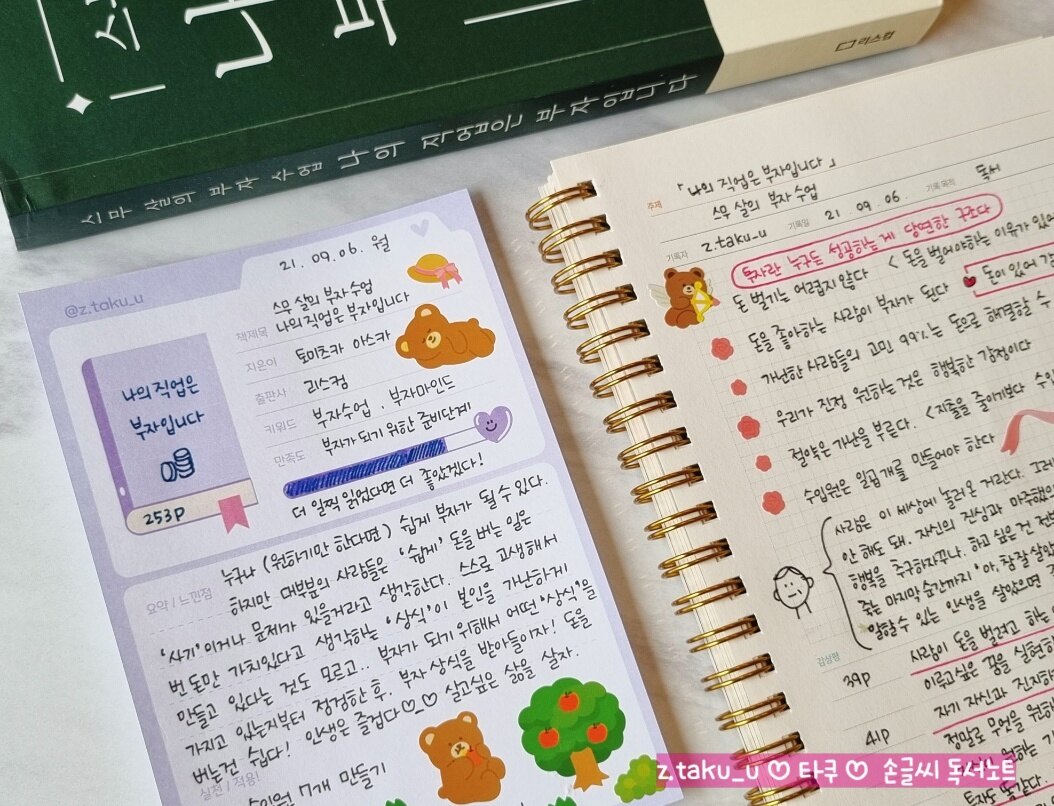 리스컴
스무 살의 부자 수업 나의 직업은 부자입니다
@z.taku_u
21. 09. 06. 월
책제목
스무 살의 부자 수업
나의 직업은 부자입니다
지은이
토미츠카 아스카
출판사
리스컴
키워드
부자수업 , 부자마인드
만족도
부자가 되기 위한 준비단계
더 일찍 읽었다면 더 좋았겠다!
나의 직업은
부자입니다
253P
요약 / 느낀점
누구나 (원하기만 한다면) 쉽게 부자가 될 수 있다.
하지만 대부분의 사람들은 '쉽게' 돈을 버는 일은
'사기'이거나 문제가 있을거라고 생각한다. 스스로 고생해서
번 돈만 가치있다고 생각하는 '상식'이 본인을 가난하게
만들고 있다는 것도 모르고.. 부자가 되기 위해서 어떤 '상식'을
가지고 있는지부터 점검한 후, 부자 상식을 받아들이자! 돈을
버는건 쉽다! 인생은 즐겁다♡_♡ 살고싶은 삶을 살자.
실천 / 적용!
수입원 7개 만들기
주제
「나의 직업은 부자입니다」
스무 살의 부자 수업
기록자
z.taku_u
기록일
21. 09. 06.
기록 목적
독서
부자란 누구든 성공하는 게 당연한 구조다
돈 벌기는 어렵지 않다 < 돈을 벌어야하는 이유가 있
돈을 좋아하는 사람이 부자가 된다
돈이 있어
가난한 사람들의 고민 99%는 돈으로 해결할 수
우리가 진정 원하는 것은 행복한 감정이다
절약은 가난을 부른다. < 지출을 줄이기보다 수입
수입원은 일곱 개를 만들어야 한다
사람은 이 세상에 놀러온 거란다. 그러
안 해도 돼. 자신의 진심과 마주했
행복을 추구하자꾸나. 하고 싶은 건 전
죽는 마지막 순간까지 '아, 참 잘 살았
말할 수 있는 인생을 살았으면
감상평
39P
사람이 돈을 벌려고 하는
이루고싶은 꿈을 실현하
자기 자신과 진지하
41P
정말로 무엇을 원하
z.taku_u ♡ 타쿠 ♡ 손글씨 독서노트